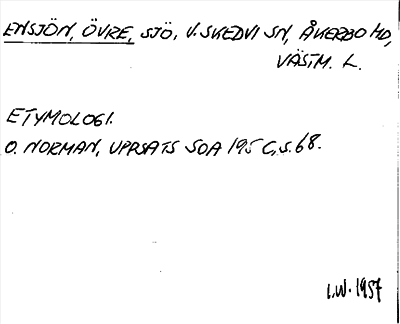 ENSJÖN, ÖVRE, SJÖ, V. SKEDVI SN, ÅKERBO HD,
VÄSTM. L.
ETYMOLOGI.
O. NORMAN, UPPSATS SOA 195 C, S. 68.
I.W. 1957